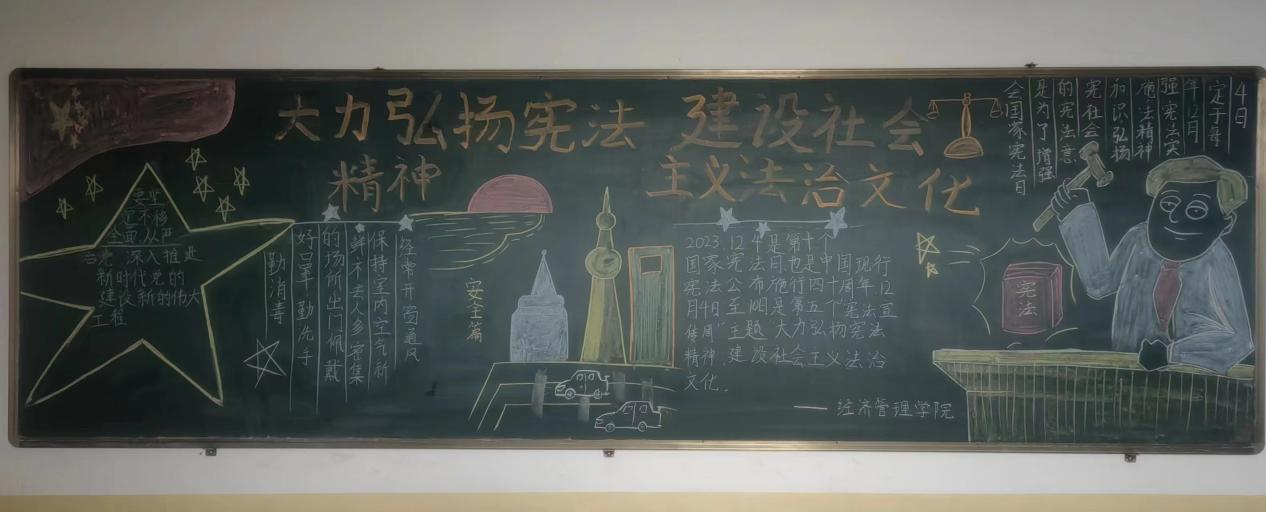 大力弘扬宪法 建设社会
精神 主义法治文化
要坚
定不移
全面从严
治党 深入推进
新时代党的
建设新的伟大
工程
经常开窗通风
保持室内空气新
鲜不去人多密集
的场所出门佩戴
好口罩勤洗手
勤消毒
安全篇
2023.12.4是第十个
国家宪法日也是中国现行
宪法公布施行四十周年12
月4日至
传周"主题"大力弘扬宪法
精神,建设社会主义法治
文化.
—— 经济管理学院
4日
定于每
年12月
强宪法实
施法精神
加识弘扬
宪社会
的宪法意
是为了增强
会国家宪法日
宪
法